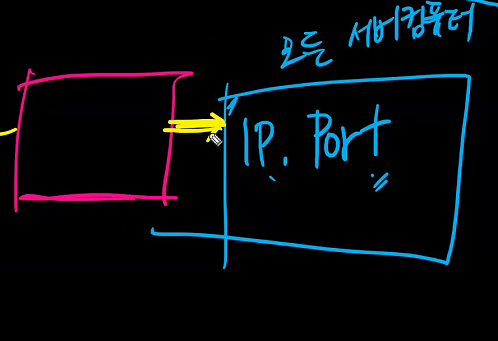 모든 서버컴퓨터
IP. Port